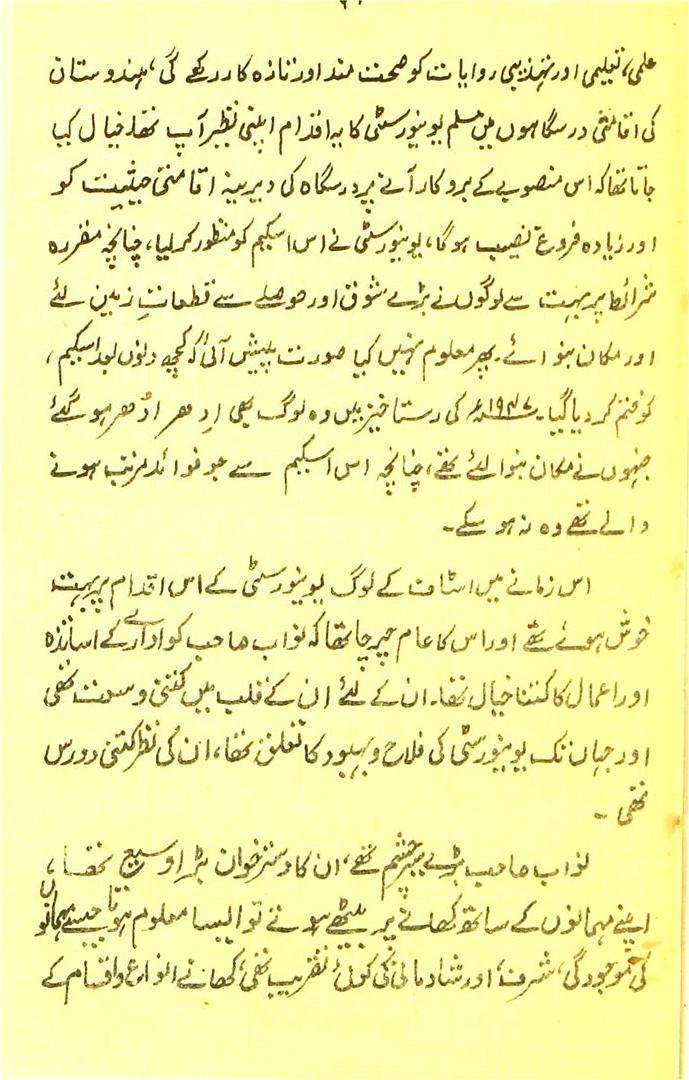 علمی، تعلیمی اور تہذیبی روایات کو صحت مند اور تازہ کار رکھے گی، ہندوستان
کی اقامتی درسگاہوں میں مسلم یونیورسٹی کا یہ اقدام اپنی نظیر آپ تھا، خیال کیا
جاتا تھا کہ اس منصوبے کے بروکار آنے پر درسگاہ کی دیرینہ اقامتی حیثیت کو
اور زیادہ فروغ نصیب ہوگا، یونیورسٹی نے اس اسکیم کو منظور کر لیا، چنانچہ مقررہ
شرائط پر بہت سے لوگوں نے بڑے شوق اور حوصلے سے قطعاتِ زمین لئے
اور مکان بنوائے۔ پھر معلوم نہیں کیا صورت پیش آئی کہ کچھ دنوں بعد اسکیم،
کو ختم کر دیا گیا۔ ۱۹۴۷ء کی رستاخیز میں وہ لوگ بھی اِدھر اُدھر ہو گئے
جنہوں نے مکان بنوا لئے تھے، چنانچہ اس اسکیم سے جو فوائد مرتب ہونے
والے تھے وہ نہ ہو سکے۔
اس زمانے میں اسٹاف کے لوگ یونیورسٹی کے اس اقدام پر بہت
خوش ہوئے تھے اور اس کا عام چرچا تھا کہ نواب صاحب کو ادارے کے اساتذہ
اور اعمال کا کتنا خیال تھا۔ ان کے لئے ان کے قلب میں کتنی وسعت تھی
اور جہاں تک یونیورسٹی کی فلاح و بہبود کا تعلق تھا، ان کی نظر کتنی دور رس
تھی۔
نواب صاحب بڑے سیر چشم تھے، ان کا دسترخوان بڑا وسیع تھا،
اپنے مہمانوں کے ساتھ کھانے پر بیٹھے ہوتے تو ایسا معلوم ہوتا جیسے مہمانوں
کی موجودگی، شرف، اور شادمانی کی کوئی تقریب تھی، کھانے انواع و اقسام کے